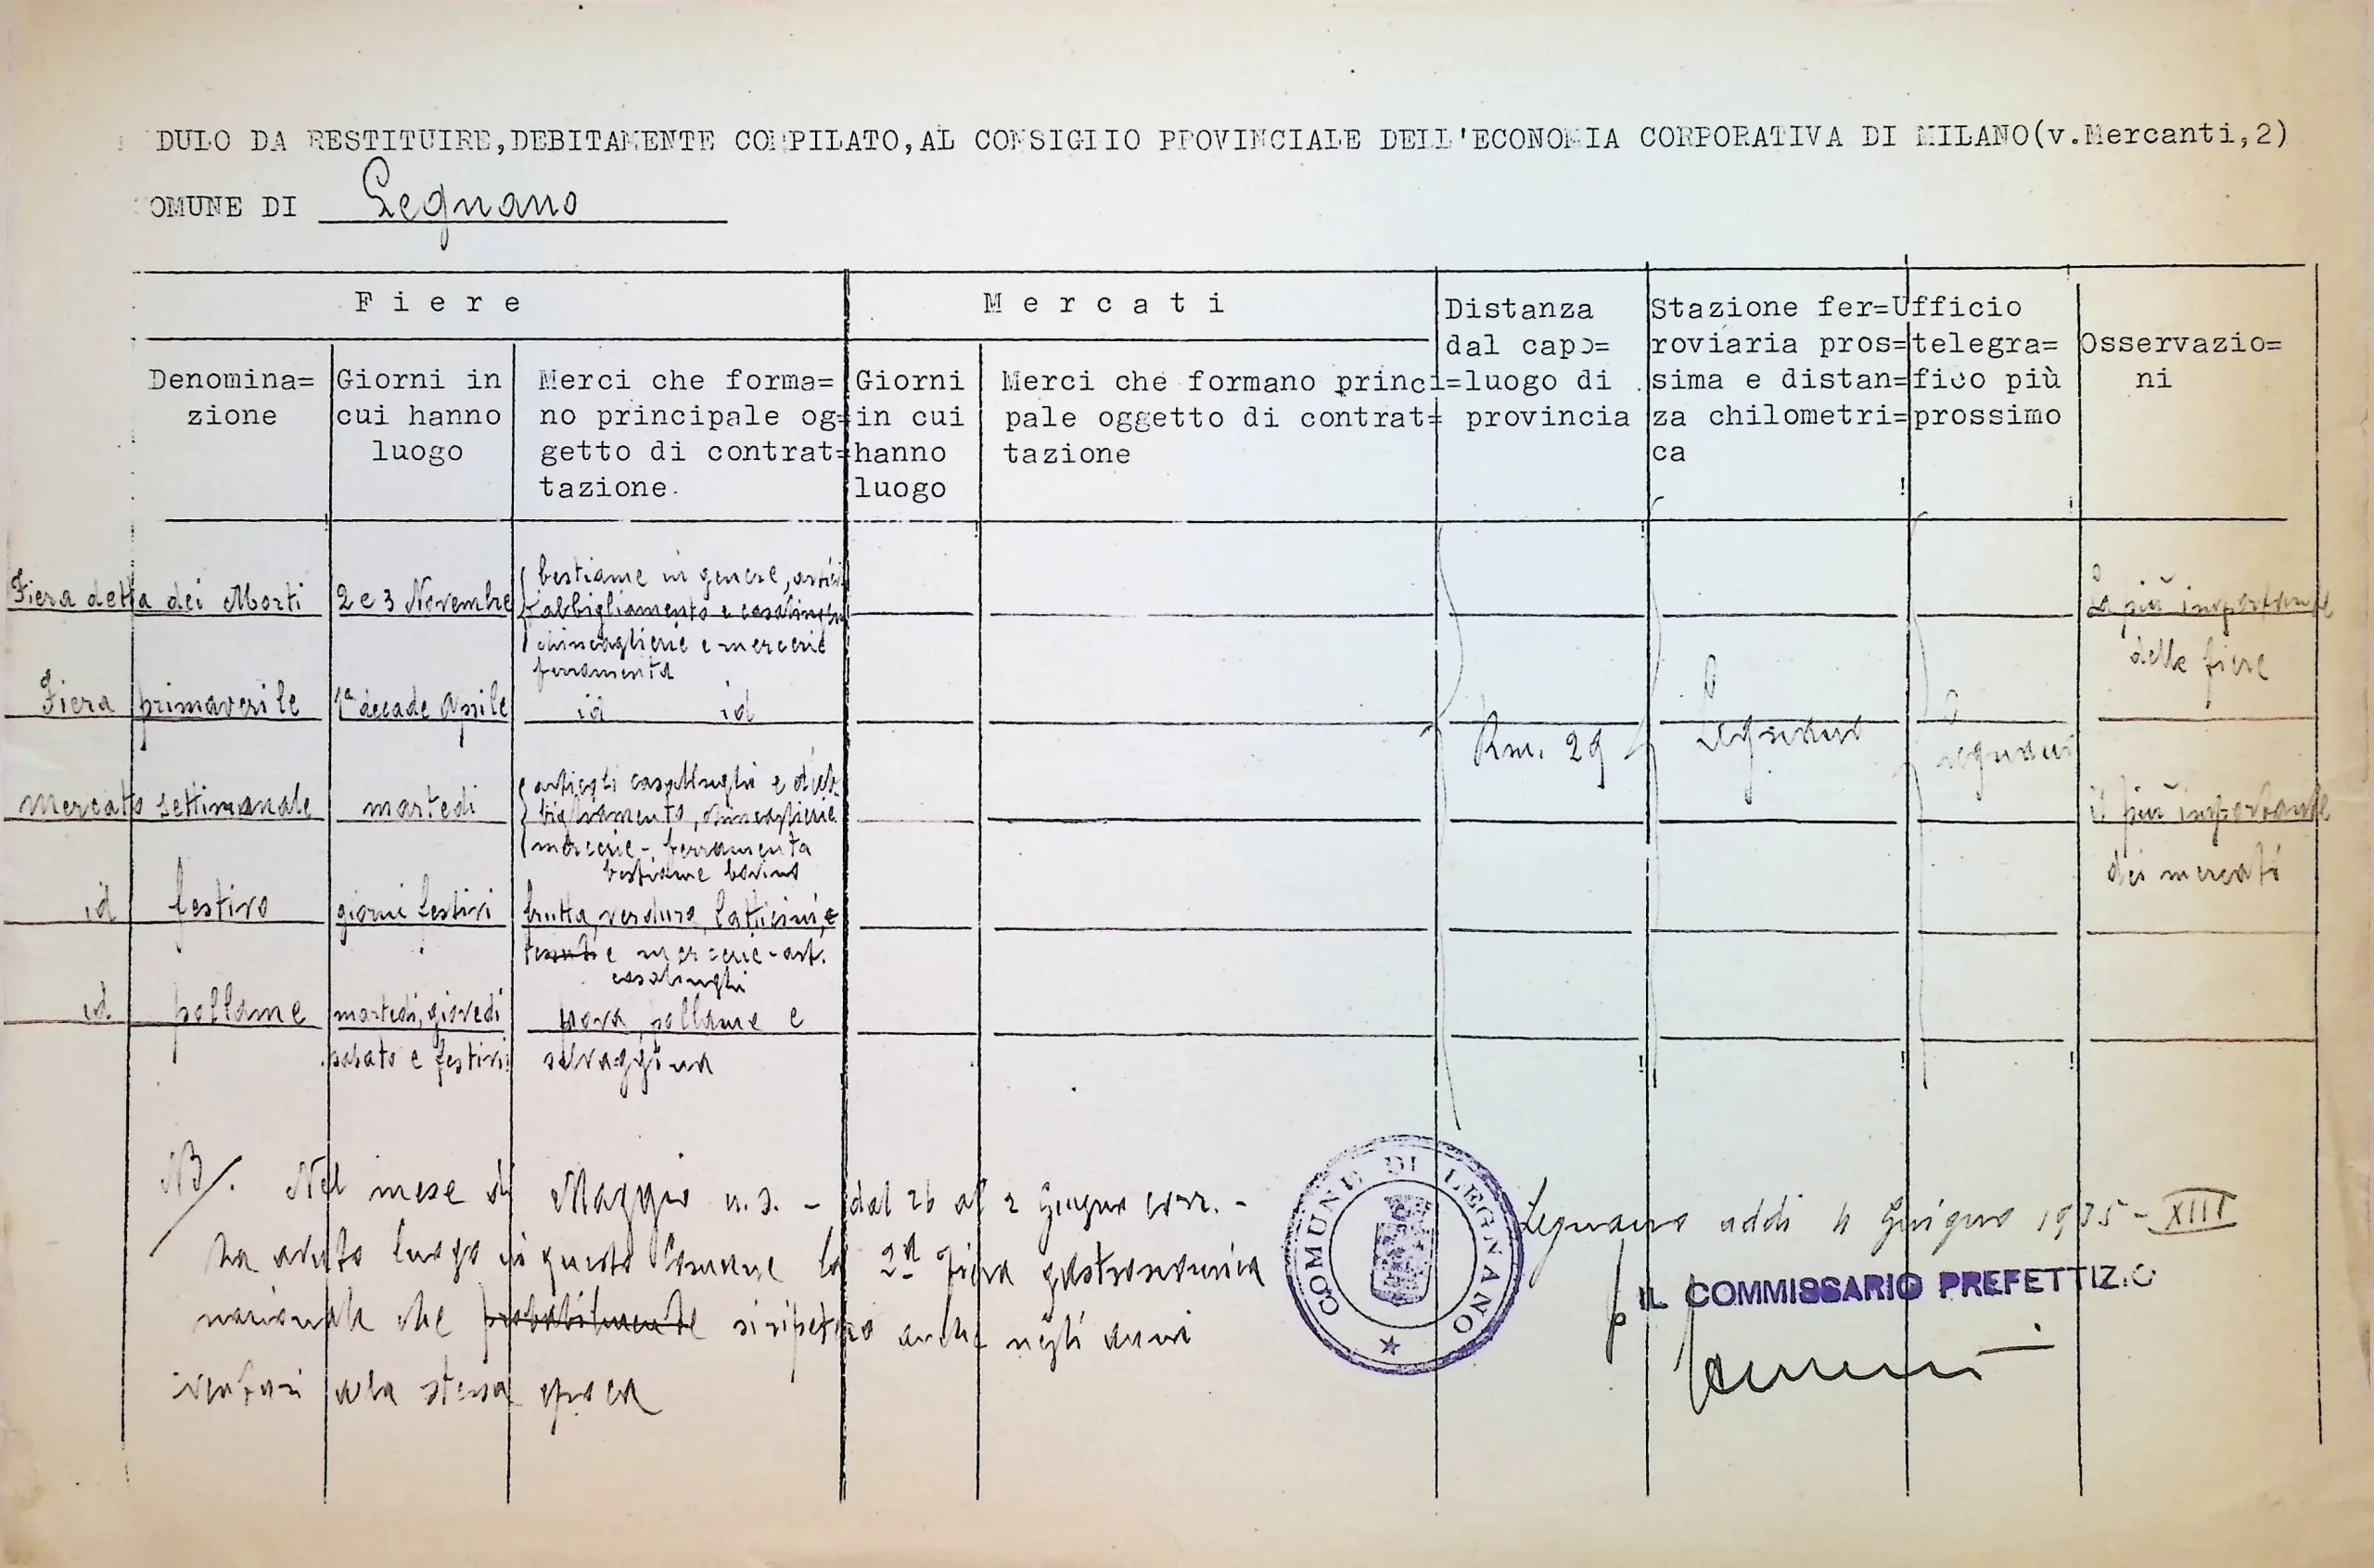 DULO DA RESTITUIRE,DEBITAMENTE COMPILATO,AL CONSIGLIO PROVINCIALE DELL'ECONOMIA CORPORATIVA DI MILANO(v.Mercanti,2)
OMUNE DI Legnano
Fiere
Mercati
Denomina=
zione
Giorni in
cui hanno
luogo
Merci che forma=
no principale og=
getto di contrat=
tazione.
Giorni
in cui
hanno
luogo
Merci che formano princi=
pale oggetto di contrat=
tazione
Distanza
dal capo=
luogo di
provincia
Stazione fer=
roviaria pros=
sima e distan=
za chilometri=
ca
Ufficio
telegra=
fico più
prossimo
Osservazio=
ni
Fiera detta dei Morti
2 e 3 Novembre
bestiame in genere, artic
abbigliamento e casalinghi
chincaglierie e mercerie
ferramenta
La più importante
delle fiere
Fiera primaverile
1ª decade Aprile
id id
Km. 29
Legnano
Legnano
Mercato settimanale
martedi
articoli casalinghi e d'ab
bigliamento, chincaglierie
mercerie - ferramenta
bestiame bovino
il più importante
dei mercati
id festivo
giorni festivi
frutta, verdura, latticini, e
tessuti e mercerie - art.
casalinghi
id pollame
martedi, giovedi
sabato e festivi
uova, pollame e
selvaggina
NB/. Nel mese di Maggio u.s. - dal 26 al 2 Giugno corr. -
ha avuto luogo in questo Comune la 2ª Fiera gastronomica
nazionale che probabilmente si ripeterà anche negli anni
venturi alla stessa epoca
COMUNE DI LEGNANO
Legnano addi 4 Giugno 1935 - XIII
p IL COMMISSARIO PREFETTIZIO